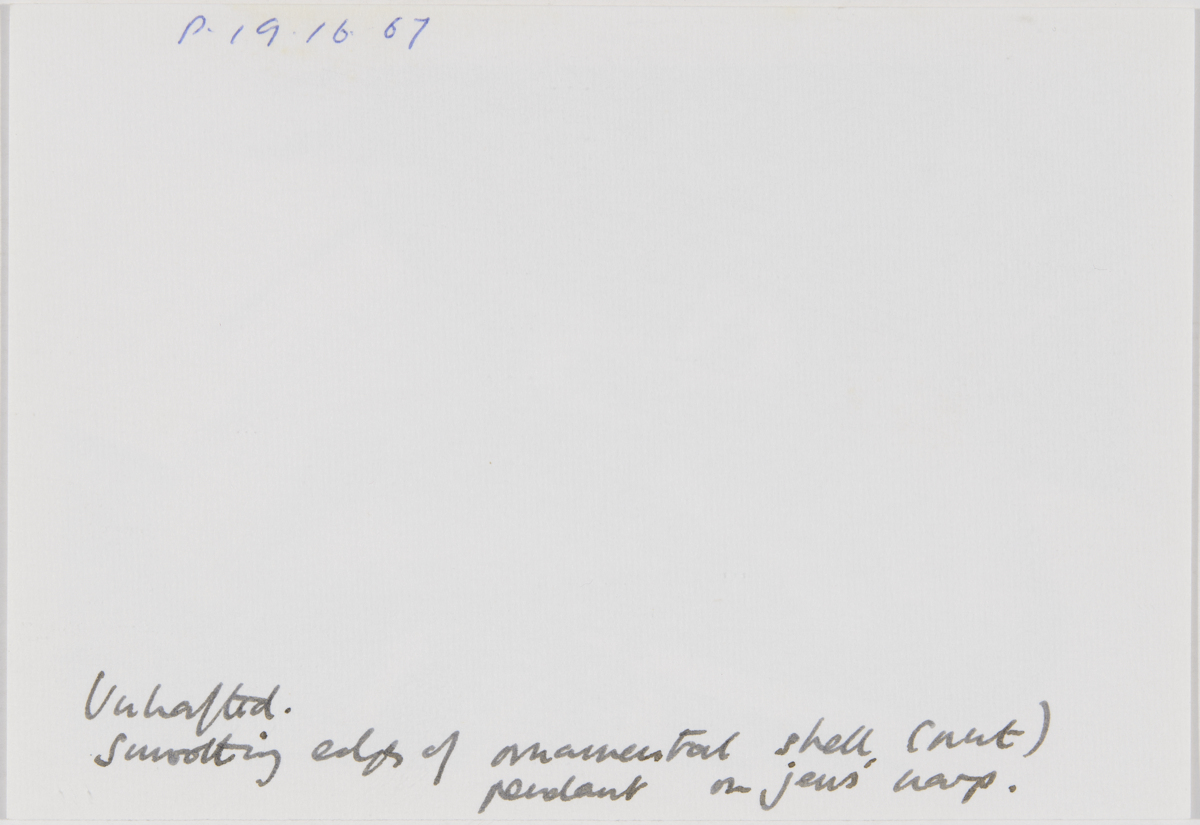 P. 19. 16. 67
Unhafted.
Smoothing edges of ornamental shell (nut)
pendant on jews' harp.